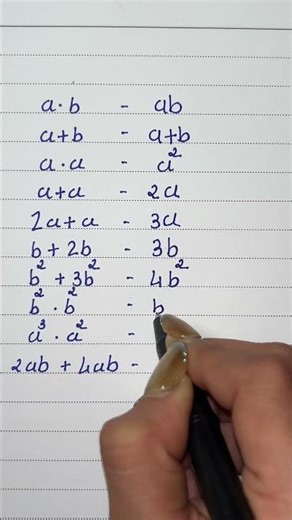 a·b - ab
a+b - a+b
a·a - a²
a+a - 2a
2a+a - 3a
b+2b - 3b
b²+3b² - 4b²
b²·b² - b
a³·a² -
2ab+4ab -